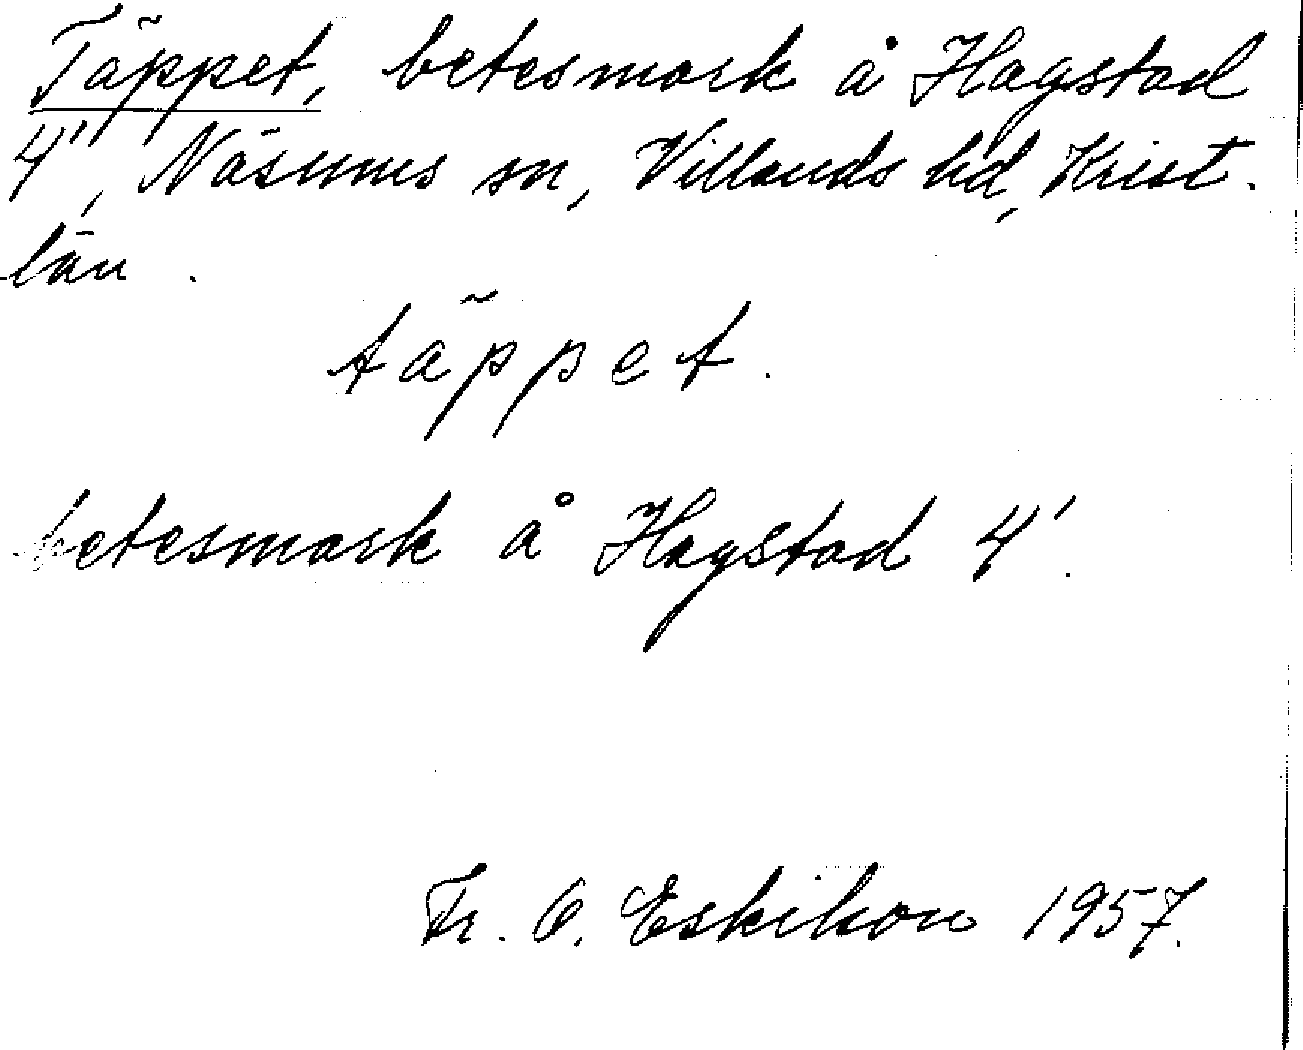 Täppet, betesmark å Hagstad
4", Näsums sn, Villands hd, Krist.
län.
täppet.
betesmark å Hagstad 4'.
Fr. O. Eskilson 1957.